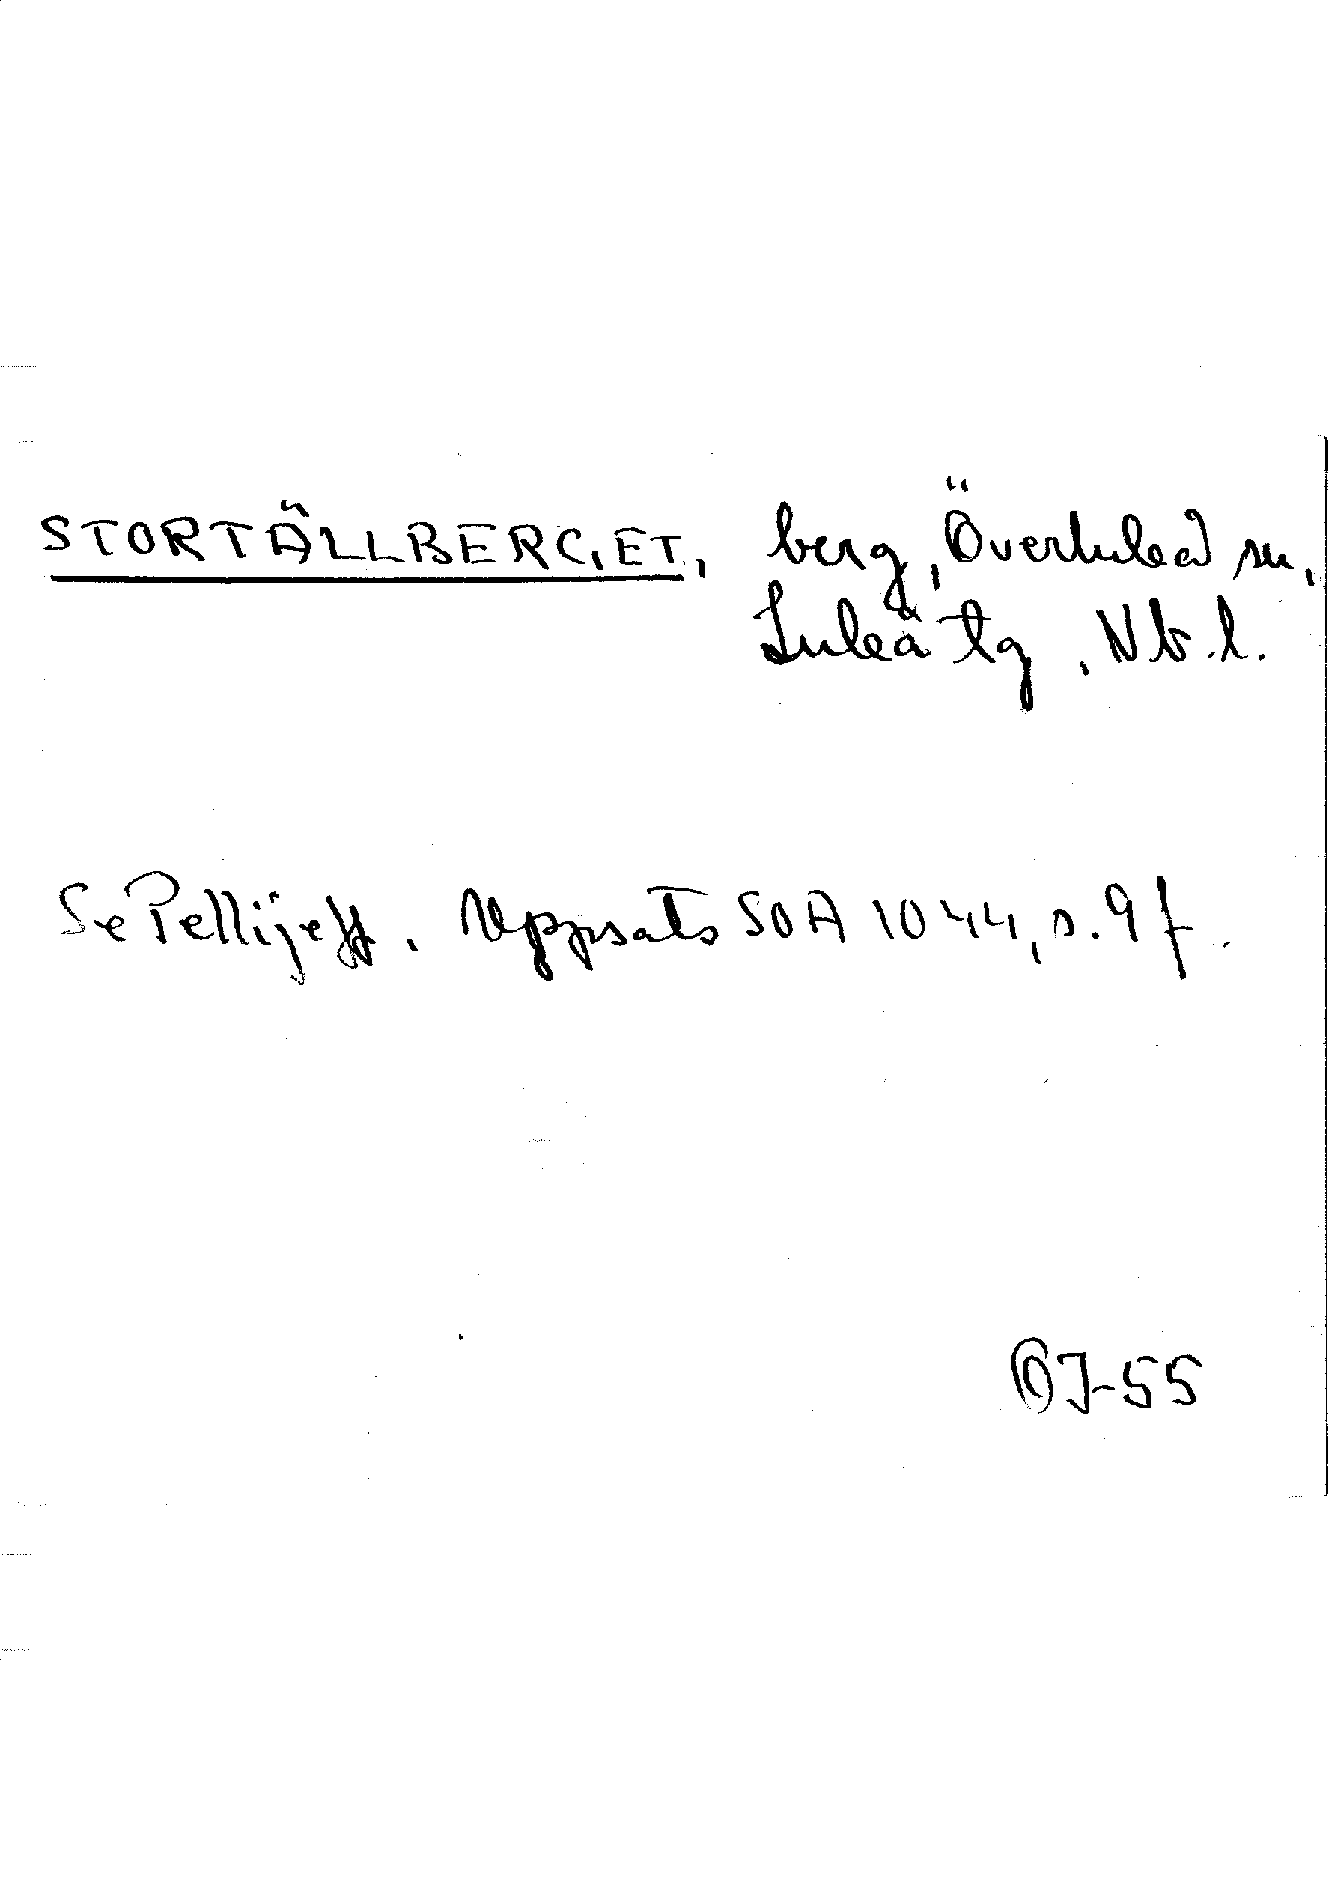 STORTÄLLBERGET, berg, Överluleå sn,
Luleå tg, Nb.l.
Se Pellijeff. Uppsats SOA 1044, s. 9 f.
OJ-55